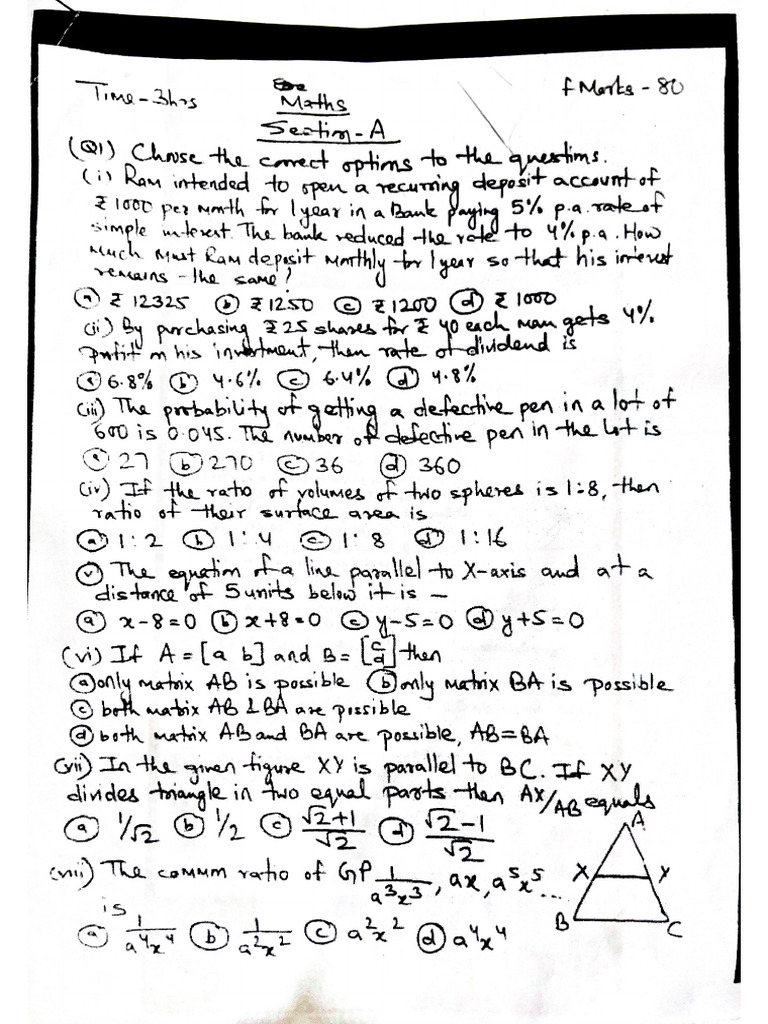 Time-3hrs Maths f Marks - 80
Section-A
(Q1) Choose the correct options to the questions.
(i) Ram intended to open a recurring deposit account of
₹ 1000 per month for 1 year in a Bank paying 5% p.a. rate of
simple interest. The bank reduced the rate to 4% p.a. How
much must Ram deposit monthly for 1 year so that his interest
remains the same?
(a) ₹ 12325 (b) ₹ 1250 (c) ₹ 1200 (d) ₹ 1000
(ii) By purchasing ₹ 25 shares for ₹ 40 each man gets 4%
profit on his investment, then rate of dividend is
(a) 6.8% (b) 4.6% (c) 6.4% (d) 4.8%
(iii) The probability of getting a defective pen in a lot of
600 is 0.045. The number of defective pen in the lot is
(a) 27 (b) 270 (c) 36 (d) 360
(iv) If the ratio of volumes of two spheres is 1:8, then
ratio of their surface area is
(a) 1:2 (b) 1:4 (c) 1:8 (d) 1:16
(v) The equation of a line parallel to X-axis and at a
distance of 5 units below it is -
(a) x-8=0 (b) x+8=0 (c) y-5=0 (d) y+5=0
(vi) If A = [a b] and B = [c d] then
(a) only matrix AB is possible (b) only matrix BA is possible
(c) both matrix AB & BA are possible
(d) both matrix AB and BA are possible, AB=BA
(vii) In the given figure XY is parallel to BC. If XY
divides triangle in two equal parts then AX/AB equals
(a) 1/√2 (b) 1/2 (c) √2+1/√2 (d) √2-1/√2
A
X Y
B C
(viii) The common ratio of GP 1/a³x³, ax, a⁵x⁵...
is
(a) 1/a⁴x⁴ (b) 1/a²x² (c) a²x² (d) a⁴x⁴